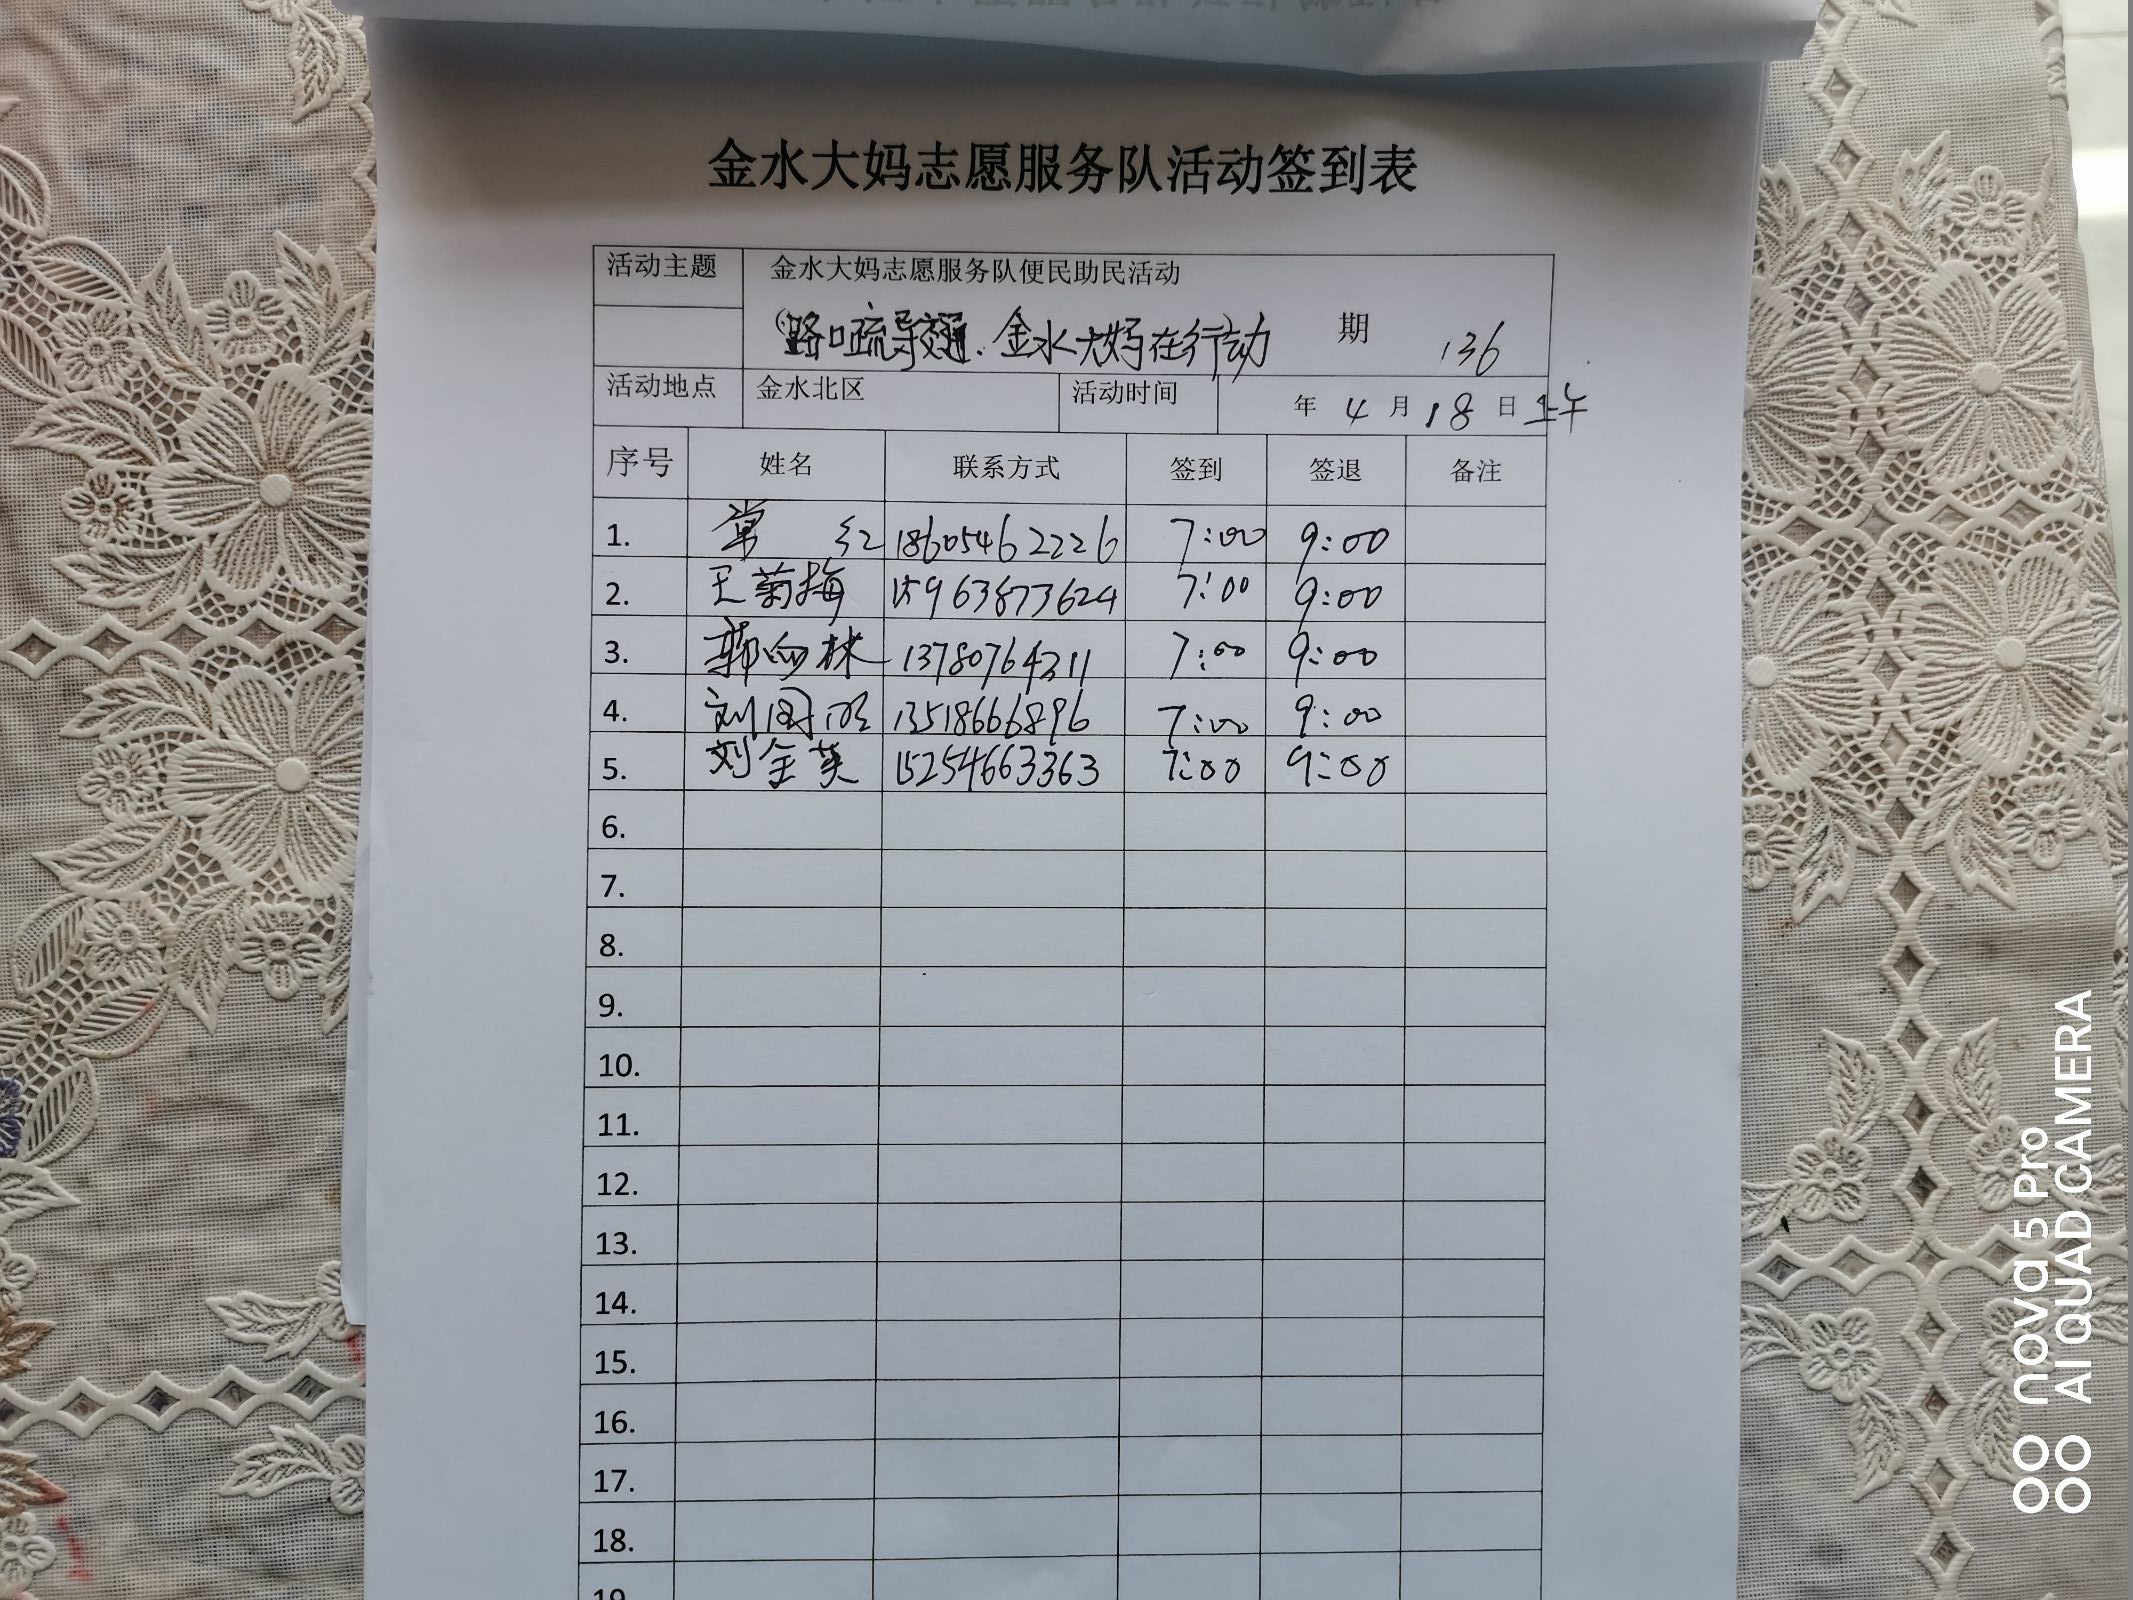 金水大妈志愿服务队活动签到表
活动主题 金水大妈志愿服务队便民助民活动
(路口疏导交通、金水大妈在行动) 期 136
活动地点 金水北区 活动时间 年 4 月 18 日 上午
序号 姓名 联系方式 签到 签退 备注
1. 常红 18605462226 7:00 9:00
2. 王菊梅 15963873624 7:00 9:00
3. 郭向林 13780764311 7:00 9:00
4. 刘国 13518666896 7:00 9:00
5. 刘金英 15254663363 7:00 9:00
6.
7.
8.
9.
10.
11.
12.
13.
14.
15.
16.
17.
18.
19
nova 5 Pro
AI QUAD CAMERA